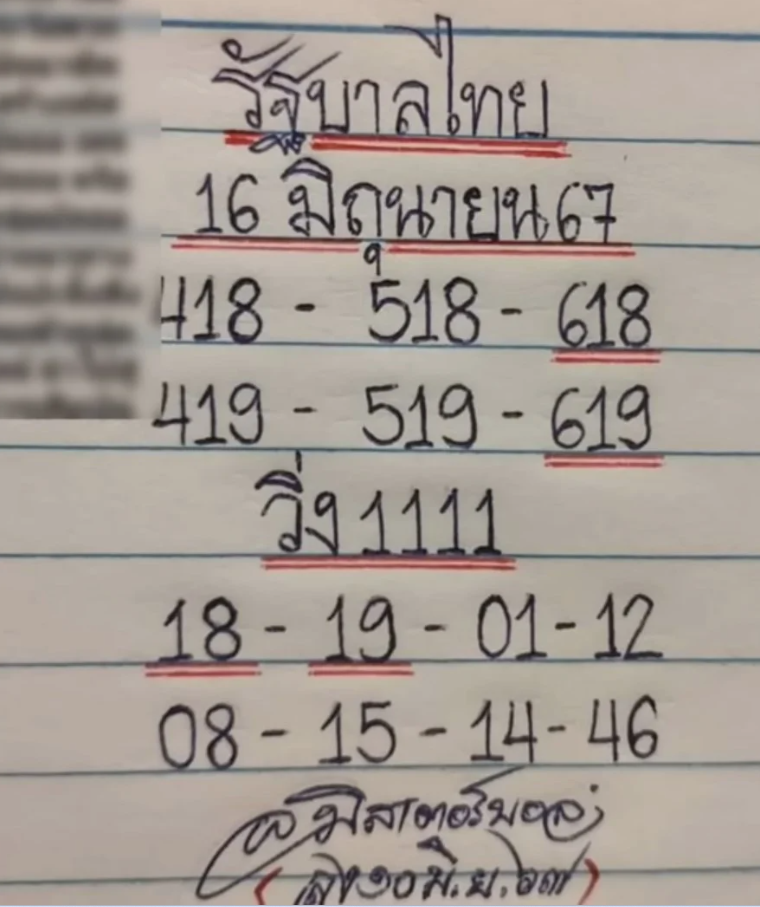 รัฐบาลไทย
16 มิถุนายน 67
418 - 518 - 618
419 - 519 - 619
วิ่ง 1111
18 - 19 - 01 - 12
08 - 15 - 14 - 46
มิสเตอร์บอล
๑๐ มิ.ย. ๖๗